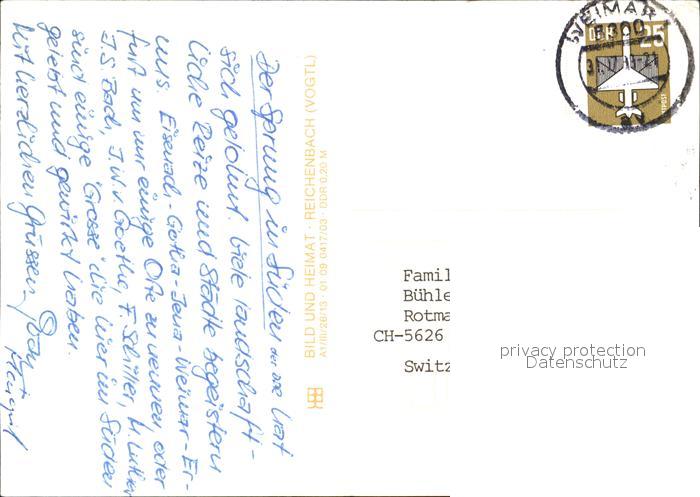 Der Sprung in Süden der DDR hat
sich gelohnt. Viele landschaft-
liche Reize und Städte begeistern
uns. Eisenach-Gotha-Jena-Weimar-Er-
furt um nur einige Orte zu nennen, oder
J.S. Bach, J.W.v. Goethe, F. Schiller, M. Luther
sind einige "Grosse" die hier im Süden
gelebt und gewirkt haben.
Mit herzlichen Grüssen,
BILD UND HEIMAT · REICHENBACH (VOGTL)
A1/III/26/13 · 01 09 0417/03 · DDR 0,20 M
WEIMAR
5300
DDR
25
LUFTPOST
Famil
Bühle
Rotma
CH-5626
Switz
privacy protection
Datenschutz